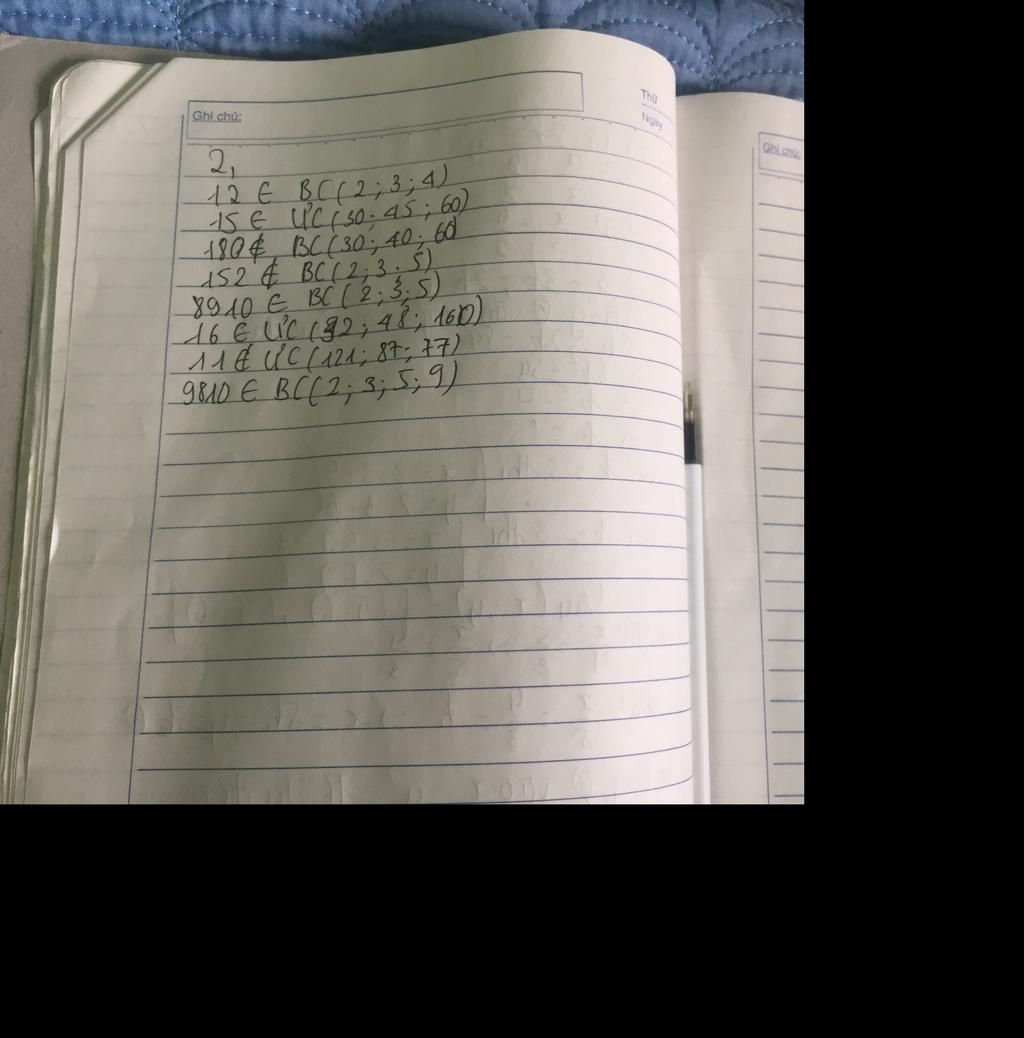 Ghi chú:
Thứ
Ngày
Ghi chú:
2,
12 ∈ BC(2; 3; 4)
15 ∈ ƯC(30; 45; 60)
180 ∉ BC(30; 40; 60
152 ∉ BC(2; 3; 5)
8910 ∈ BC(2; 3; 5)
16 ∈ ƯC(32; 48; 160)
11 ∉ ƯC(121; 87; 77)
9810 ∈ BC(2; 3; 5; 9)